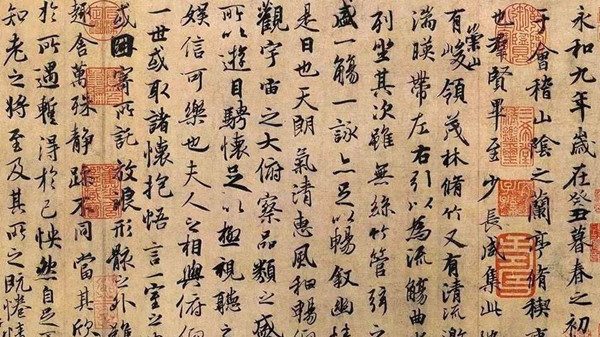 永和九年歲在癸丑暮春之初
于會稽山陰之蘭亭脩稧事
也羣賢畢至少長咸集此
有崇山峻領茂林脩竹又有清流激
湍暎帶左右引以為流觴曲
列坐其次雖無絲竹管弦之
盛一觴一詠亦足以暢敘幽情
是日也天朗氣清惠風和暢仰
觀宇宙之大俯察品類之盛
所以遊目騁懷足以極視聽之
娛信可樂也夫人之相與俯仰
一世或取諸懷抱悟言一室之
或因寄所託放浪形骸之外雖
趣舍萬殊靜躁不同當其欣
於所遇暫得於己怏然自足
知老之將至及其所之既惓情